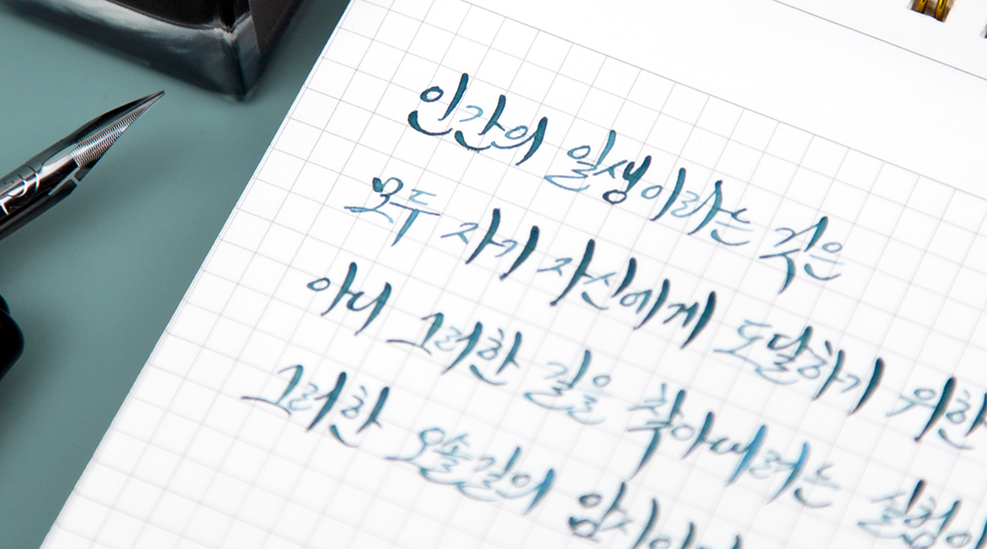 인간의 일생이라는 것은
모두 자기 자신에게 도달하기 위한
아니 그러한 길을 찾아내려는 실험이
그러한 오솔길의 암시이